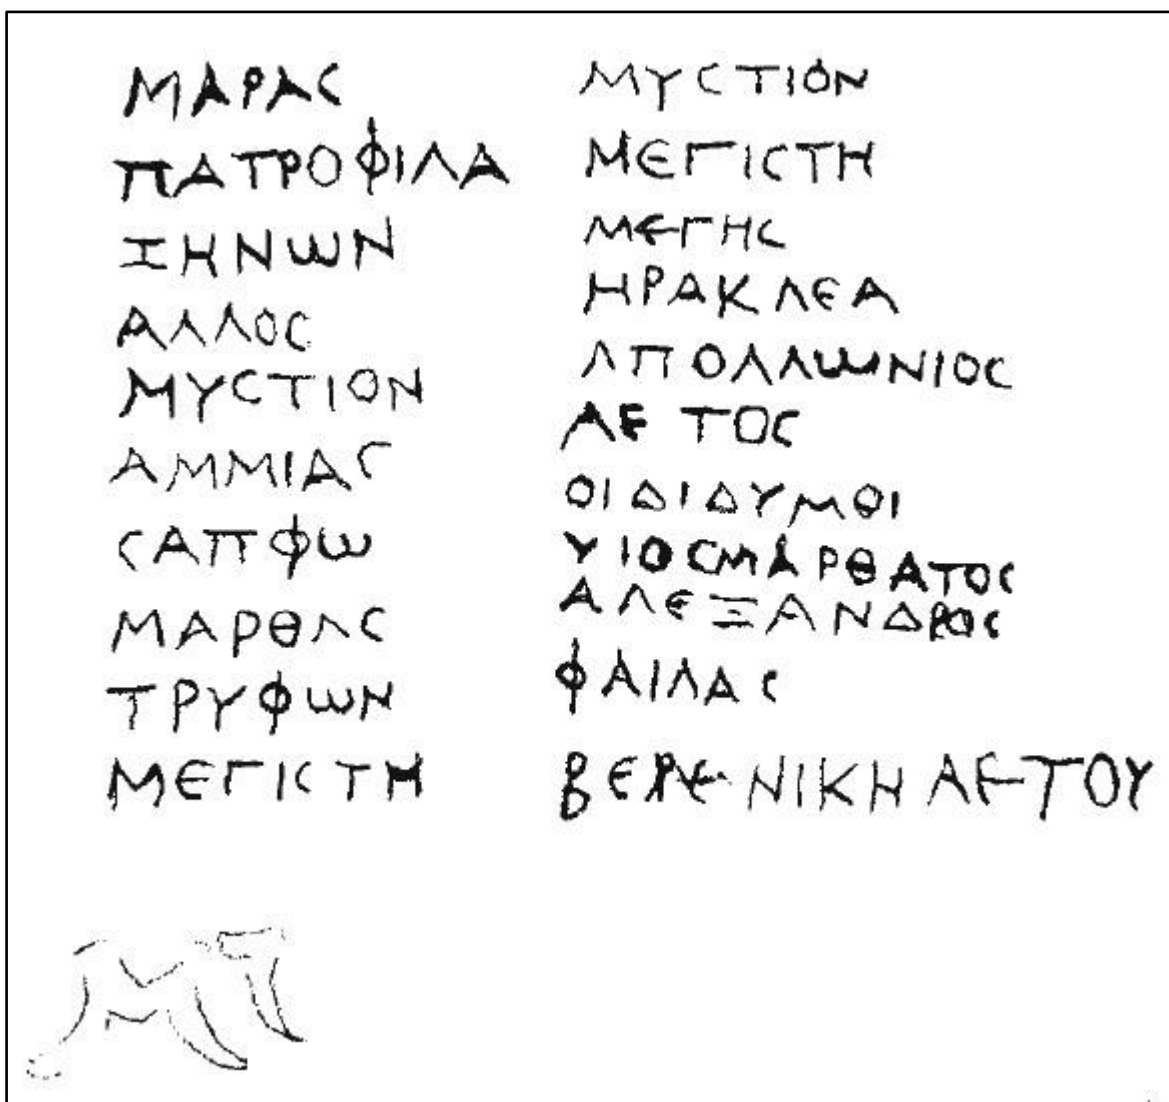 ΜΑΡΑϹ
ΠΑΤΡΟΦΙΛΑ
ΞΗΝΩΝ
ΑΛΛΟϹ
ΜΥϹΤΙΟΝ
ΑΜΜΙΑϹ
ϹΑΠΦΩ
ΜΑΡΘΑϹ
ΤΡΥΦΩΝ
ΜΕΓΙϹΤΗ
ΜΥϹΤΙΟΝ
ΜΕΓΙϹΤΗ
ΜΕΓΗϹ
ΗΡΑΚΛΕΑ
ΑΠΟΛΛΩΝΙΟϹ
ΑΕΤΟϹ
ΟΙ ΔΙΔΥΜΟΙ
ΥΙΟϹ ΜΑΡΘΑΤΟϹ
ΑΛΕΞΑΝΔΡΟϹ
ΦΑΙΛΑϹ
ΒΕΡΕΝΙΚΗ ΑΕΤΟΥ